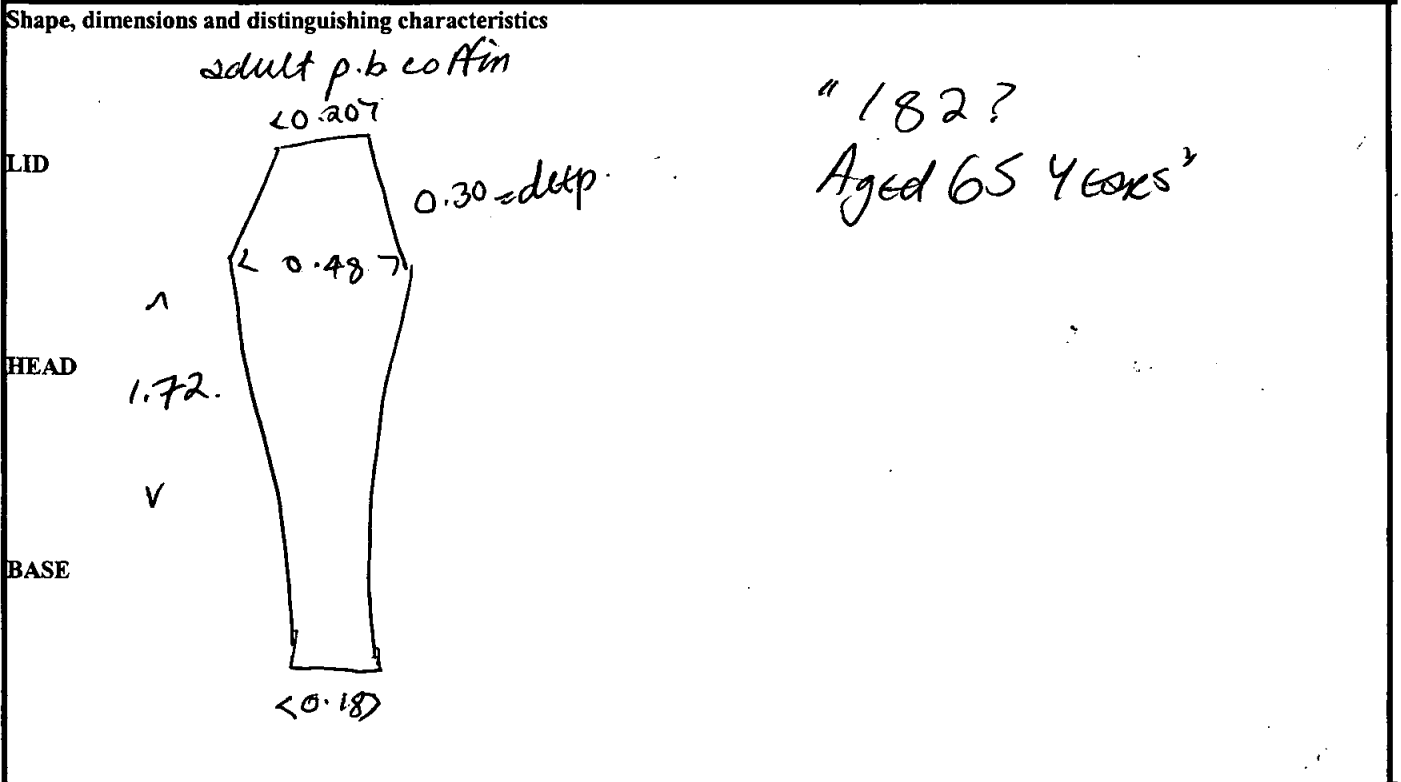 Shape, dimensions and distinguishing characteristics
adult p.b coffin
<0.20>
LID
0.30 = deep.
< 0.48 >
HEAD
1.72.
BASE
<0.18>
"182?
Aged 65 Years"